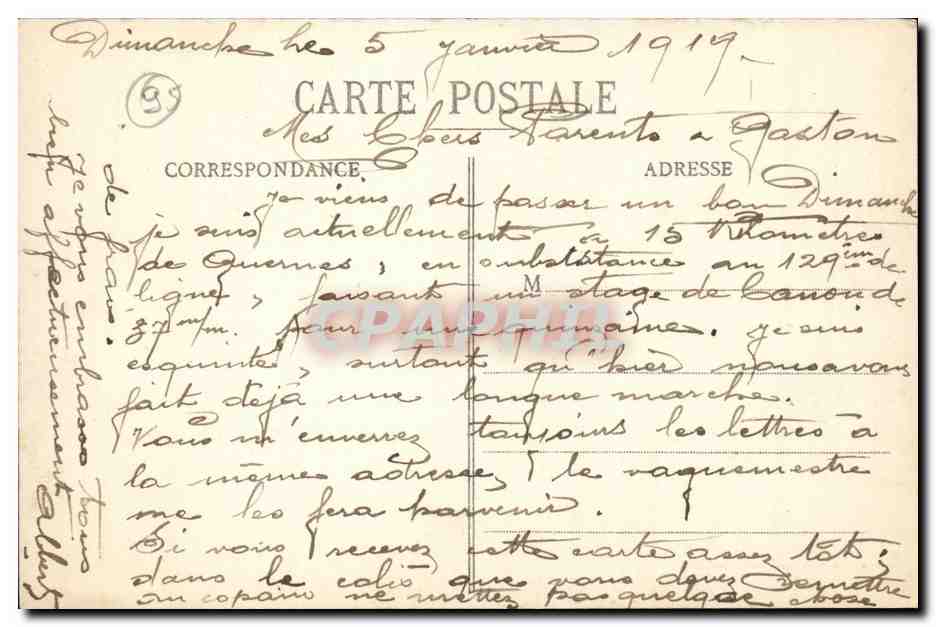 Dimanche le 5 janvier 1919.
95
CARTE POSTALE
Mes Chers Parents & Gaston
CORRESPONDANCE
ADRESSE
Je viens de passer un bon Dimanche
je suis actuellement à 15 Kilomètres
de Guernes, en subsistance au 129ème de
ligne, faisant un stage de Canon de
37 m/m. pour une quinzaine. Je suis
M
CPAPHIL
esquinté, surtout qu'hier nous avons
fait déjà une longue marche.
Vous m'enverrez toujours les lettres à
la même adresse, le vaguemestre
me les fera parvenir.
Si vous recevez cette carte assez tôt,
dans le colis que vous devez remettre
au copain ne mettez pas quelque chose
de frais.
Je vous embrasse tous
bien affectueusement
Albert